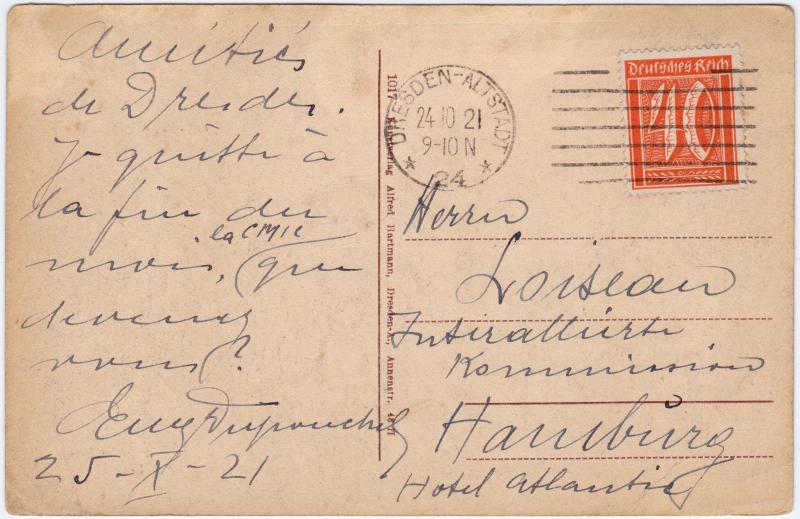 Amitiés
de Dresde.
Je quitte à
la fin du
mois, la CMIC que
devenez
vous?
25-X-21
1017 Kunstverlag Alfred Hartmann, Dresden-A., Annenstr.
DRESDEN-ALTSTADT
24 10 21
9-10 N
* 24 *
Deutsches Reich
40
Herrn
Loiseau
Interalliierte
Kommission
Hamburg
Hotel Atlantic